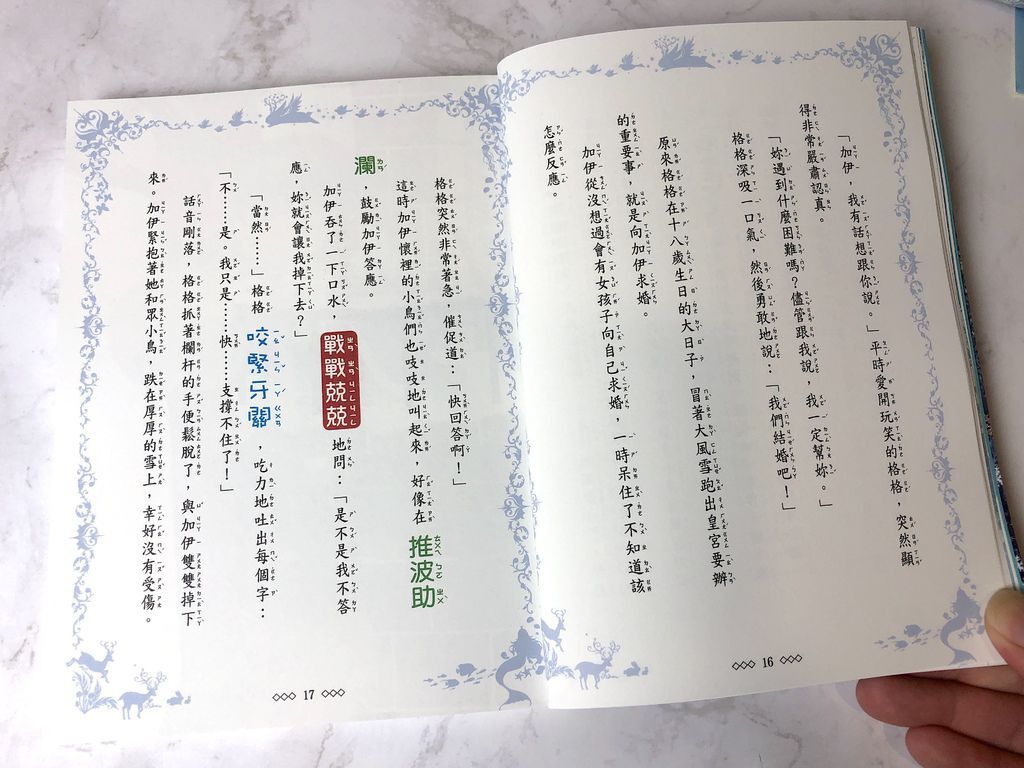 「加伊，我有話想跟你說。」平時愛開玩笑的格格，突然顯
得非常嚴肅認真。
「妳遇到什麼困難嗎？儘管跟我說，我一定幫妳。」
格格深吸一口氣，然後勇敢地說：「我們結婚吧！」
原來格格在十八歲生日的大日子，冒著大風雪跑出皇宮要辦
的重要事，就是向加伊求婚。
加伊從沒想過會有女孩子向自己求婚，一時呆住了不知道該
怎麼反應。
16
格格突然非常著急，催促道：「快回答啊！」
這時加伊懷裡的小鳥們也吱吱地叫起來，好像在推波助
瀾，鼓勵加伊答應。
加伊吞了一下口水，戰戰兢兢地問：「是不是我不答
應，妳就會讓我掉下去？」
「當然……」格格咬緊牙關，吃力地吐出每個字：
「不……是。我只是……快……支撐不住了！」
話音剛落，格格抓著欄杆的手便鬆脫了，與加伊雙雙掉下
來。加伊緊抱著她和眾小鳥，跌在厚厚的雪上，幸好沒有受傷。
17